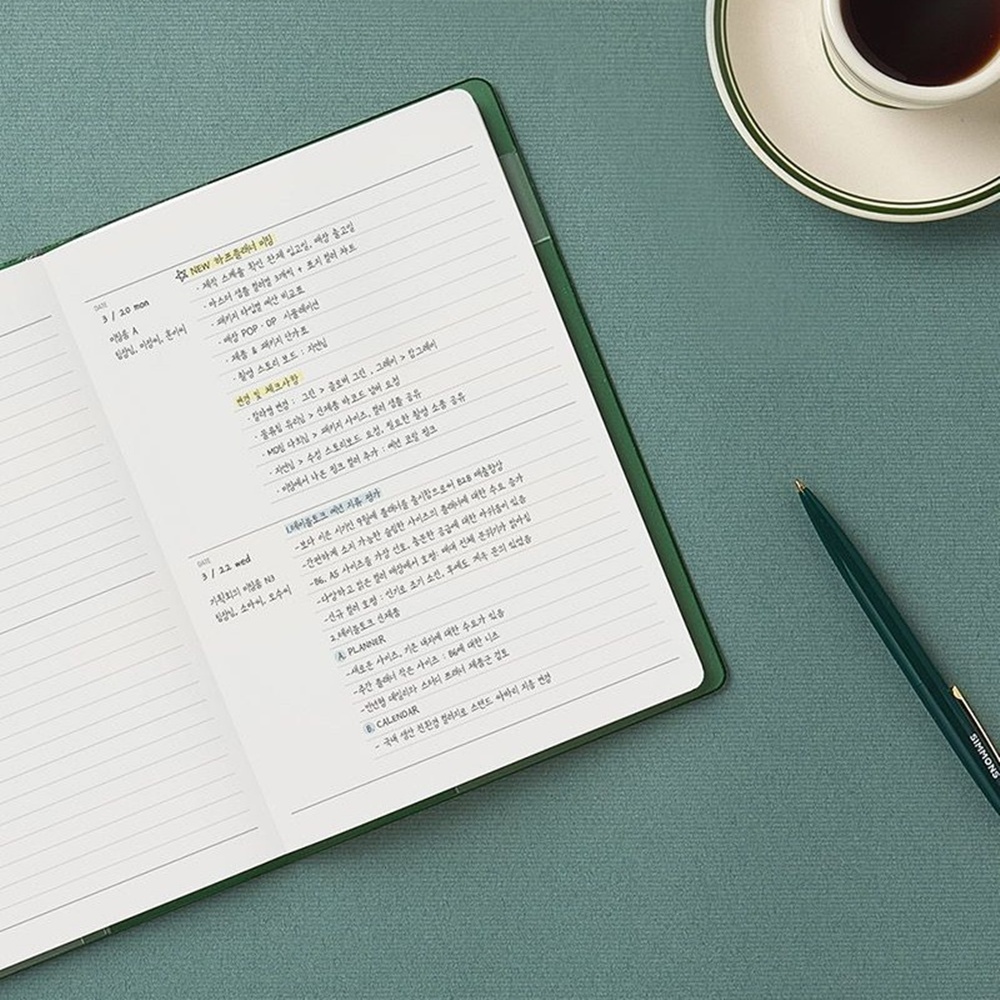 DATE
3 / 20 mon
미팅룸 A
팀장님, 이정이, 훈이이
☆ NEW 하프플래너 미팅
· 제작 스케줄 확인 완제 입고일, 매장 출고일
· 마스터 샘플 컬러별 3개씩 + 표지 컬러 차트
· 패키지 타입별 예산 비교표
· 매장 POP · DP 시뮬레이션
· 제품 & 패키지 단가표
· 촬영 스토리 보드 : 지연님
변경 및 체크사항
· 컬러명 변경 : 그린 > 글로버 그린, 그레이 > 딤그레이
· 물류팀 유리님 > 신제품 바코드 넘버 요청
· MD팀 다희님 > 패키지 사이즈, 컬러 샘플 공유
· 지연님 > 수정 스토리보드 요청, 필요한 촬영 소품 공유
· 미팅에서 나온 핑크 컬러 추가 : 예년 코랄 핑크
DATE
3 / 22 wed
기획회의 미팅룸 N3
팀장님, 소아이, 오수이
1.테이블토크 예년 지류 평가
-보다 이른 시기인 9월에 플래너를 출시함으로써 B2B 매출향상
-간편하게 소지 가능한 슬림한 사이즈의 플래너에 대한 수요 증가
-B6, A5 사이즈를 가장 선호, 충분한 공급에 대한 아쉬움이 있음
-다양하고 밝은 컬러 매장에서 호평: 매대 전체 분위기가 밝아짐
-신규 컬러 호평 : 인기로 조기 소진, 후에도 계속 문의 있었음
2.테이블토크 신제품
A. PLANNER
-새로운 사이즈, 기존 내지에 대한 수요가 있음
-주간 플래너 작은 사이즈 : B6에 대한 니즈
-만년형 데일리와 스터디 플래너 제품군 검토
B. CALENDAR
- 국내 생산 친환경 컬러지로 스탠드 아이디 지종 변경
SIMMONS